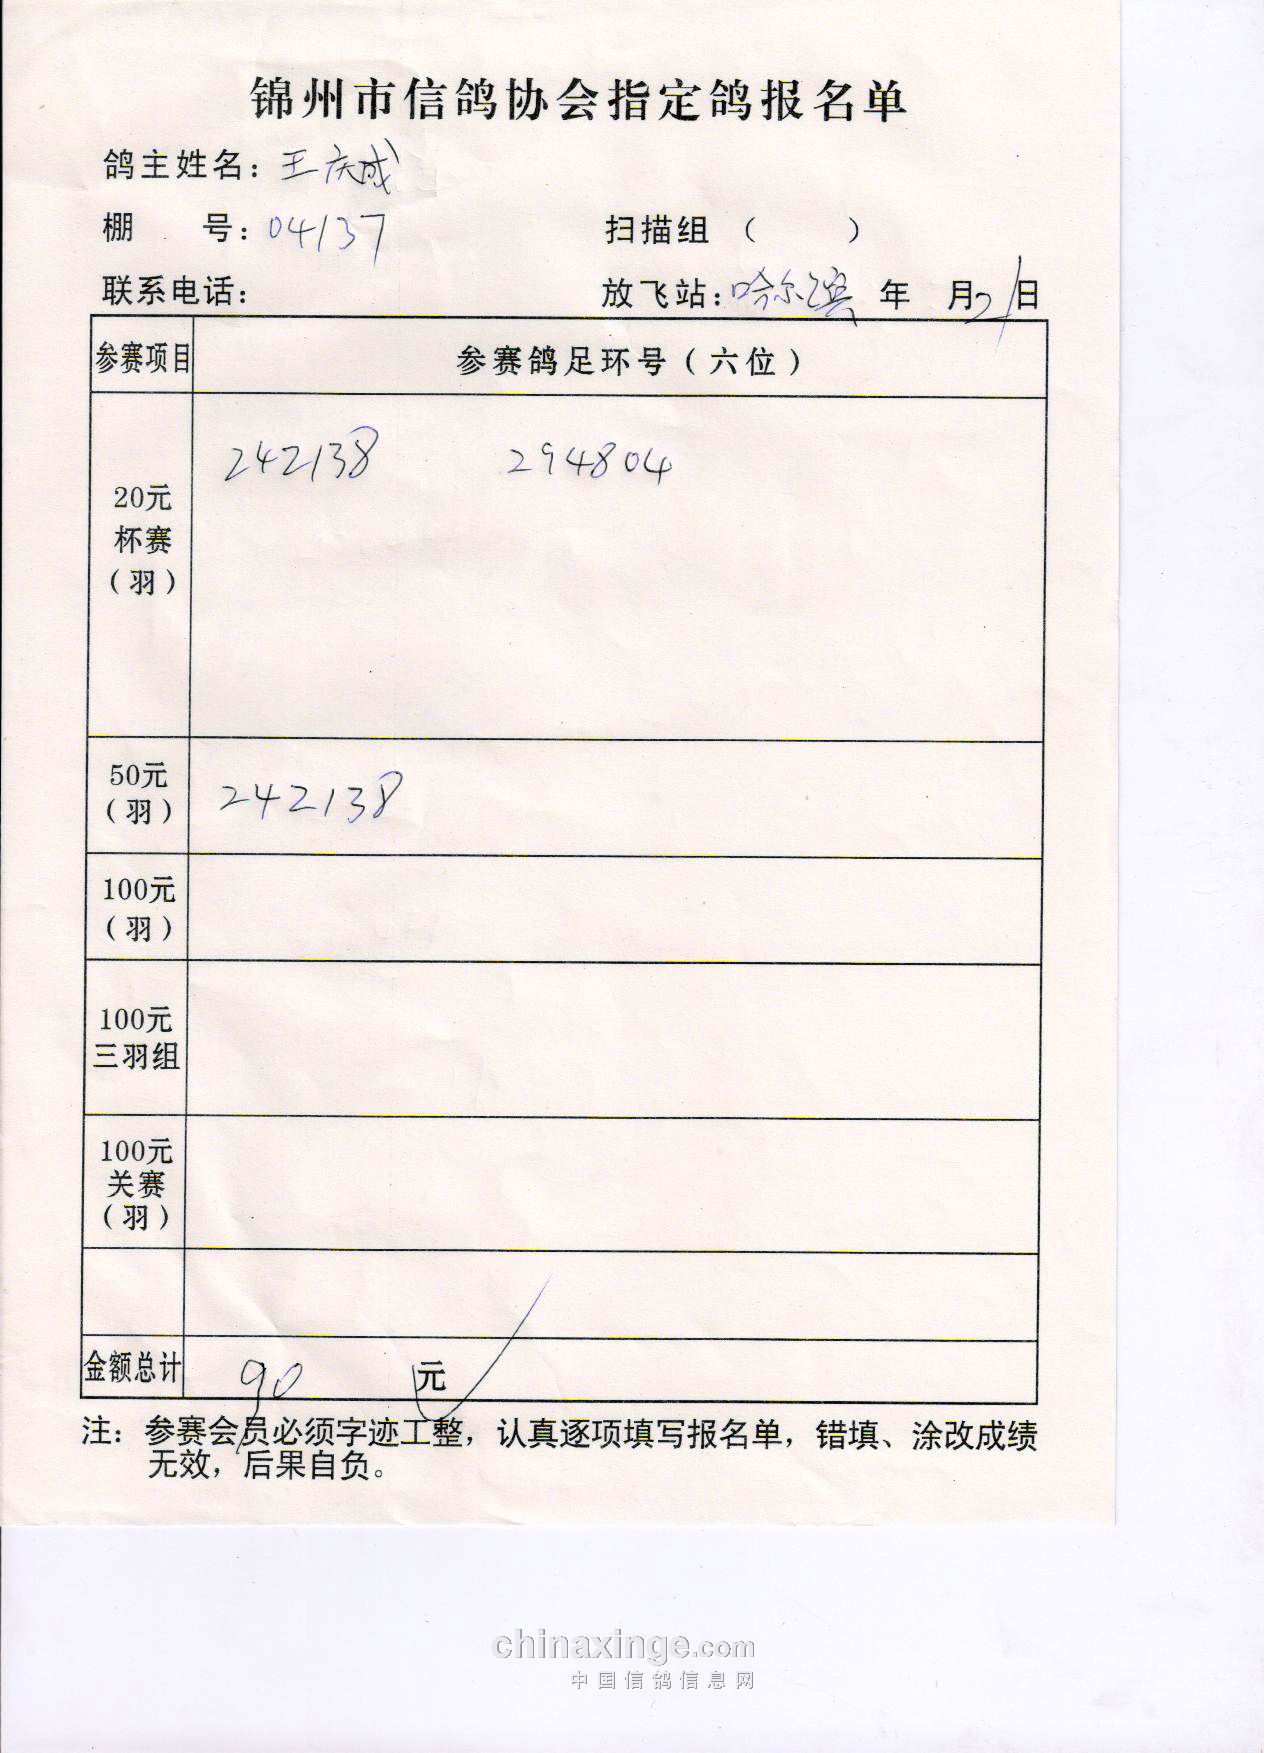 锦州市信鸽协会指定鸽报名单
鸽主姓名：王庆成
棚 号：04137 扫描组（ ）
联系电话： 放飞站：哈尔滨 年 月21日
参赛项目 参赛鸽足环号（六位）
20元
杯赛
（羽）
242138 294804
50元
（羽）
242138
100元
（羽）
100元
三羽组
100元
关赛
（羽）
金额总计 90 元
注：参赛会员必须字迹工整，认真逐项填写报名单，错填、涂改成绩
无效，后果自负。
chinaxinge.com
中国信鸽信息网